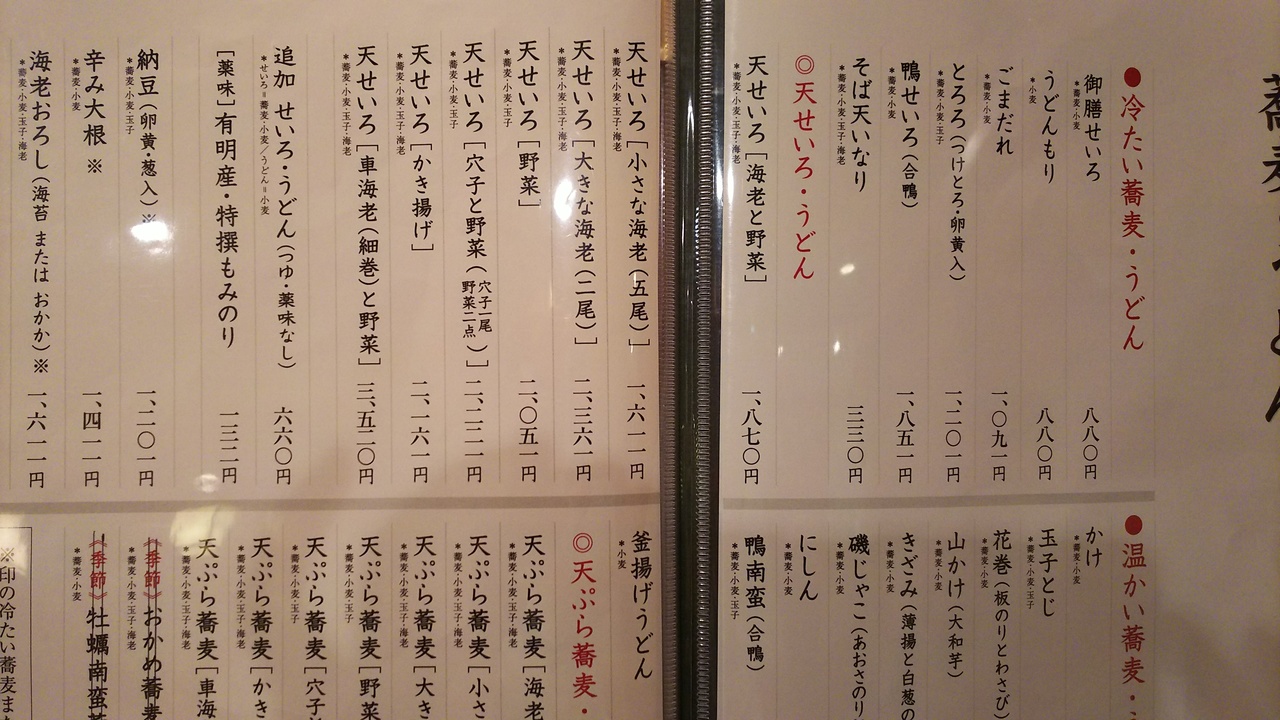 ●冷たい蕎麦・うどん
御膳せいろ 八八〇円
*蕎麦・小麦
うどんもり 八八〇円
*小麦
ごまだれ 一、〇九一円
*蕎麦・小麦
とろろ(つけとろ・卵黄入) 一、二〇一円
*蕎麦・小麦・玉子
鴨せいろ(合鴨) 一、八五一円
*蕎麦・小麦
そば天いなり 三三〇円
*蕎麦・小麦・玉子・海老
◎天せいろ・うどん
天せいろ[海老と野菜] 一、八七〇円
*蕎麦・小麦・玉子・海老
天せいろ[小さな海老(五尾)] 一、六一一円
*蕎麦・小麦・玉子・海老
天せいろ[大きな海老(二尾)] 二、三六一円
*蕎麦・小麦・玉子・海老
天せいろ[野菜] 二、〇五一円
*蕎麦・小麦・玉子
天せいろ[穴子と野菜(穴子一尾 野菜二点)] 二、二三一円
*蕎麦・小麦・玉子
天せいろ[かき揚げ] 二、一六一円
*蕎麦・小麦・玉子・海老
天せいろ[車海老(細巻)と野菜] 三、五二〇円
*蕎麦・小麦・玉子・海老
追加 せいろ・うどん(つゆ・薬味なし) 六六〇円
*せいろ=蕎麦・小麦/うどん=小麦
[薬味]有明産・特撰もみのり 一三二円
納豆(卵黄・葱入)※ 一、二〇一円
*蕎麦・小麦・玉子
辛み大根 ※ 一、四一一円
*蕎麦・小麦
海老おろし(海苔 または おかか)※ 一、六一一円
*蕎麦・小麦・玉子・海老
●温かい蕎麦・
かけ
*蕎麦・小麦
玉子とじ
*蕎麦・小麦・玉子
花巻(板のりとわさび)
*蕎麦・小麦
山かけ(大和芋)
*蕎麦・小麦
きざみ(薄揚と白葱の
*蕎麦・小麦
磯じゃこ(あおさのり
*蕎麦・小麦
にしん
*蕎麦・小麦
鴨南蛮(合鴨)
*蕎麦・小麦・玉子
釜揚げうどん
*小麦
◎天ぷら蕎麦・
天ぷら蕎麦[海老
*蕎麦・小麦・玉子・海老
天ぷら蕎麦[小さ
*蕎麦・小麦・玉子・海老
天ぷら蕎麦[大き
*蕎麦・小麦・玉子・海老
天ぷら蕎麦[野菜
*蕎麦・小麦・玉子
天ぷら蕎麦[穴子
*蕎麦・小麦・玉子
天ぷら蕎麦[かき
*蕎麦・小麦・玉子・海老
天ぷら蕎麦[車海
*蕎麦・小麦・玉子・海老
《季節》おかめ蕎麦
*蕎麦・小麦・玉子・海老
《季節》牡蠣南蛮蕎
*蕎麦・小麦
※印の冷たい蕎麦ま